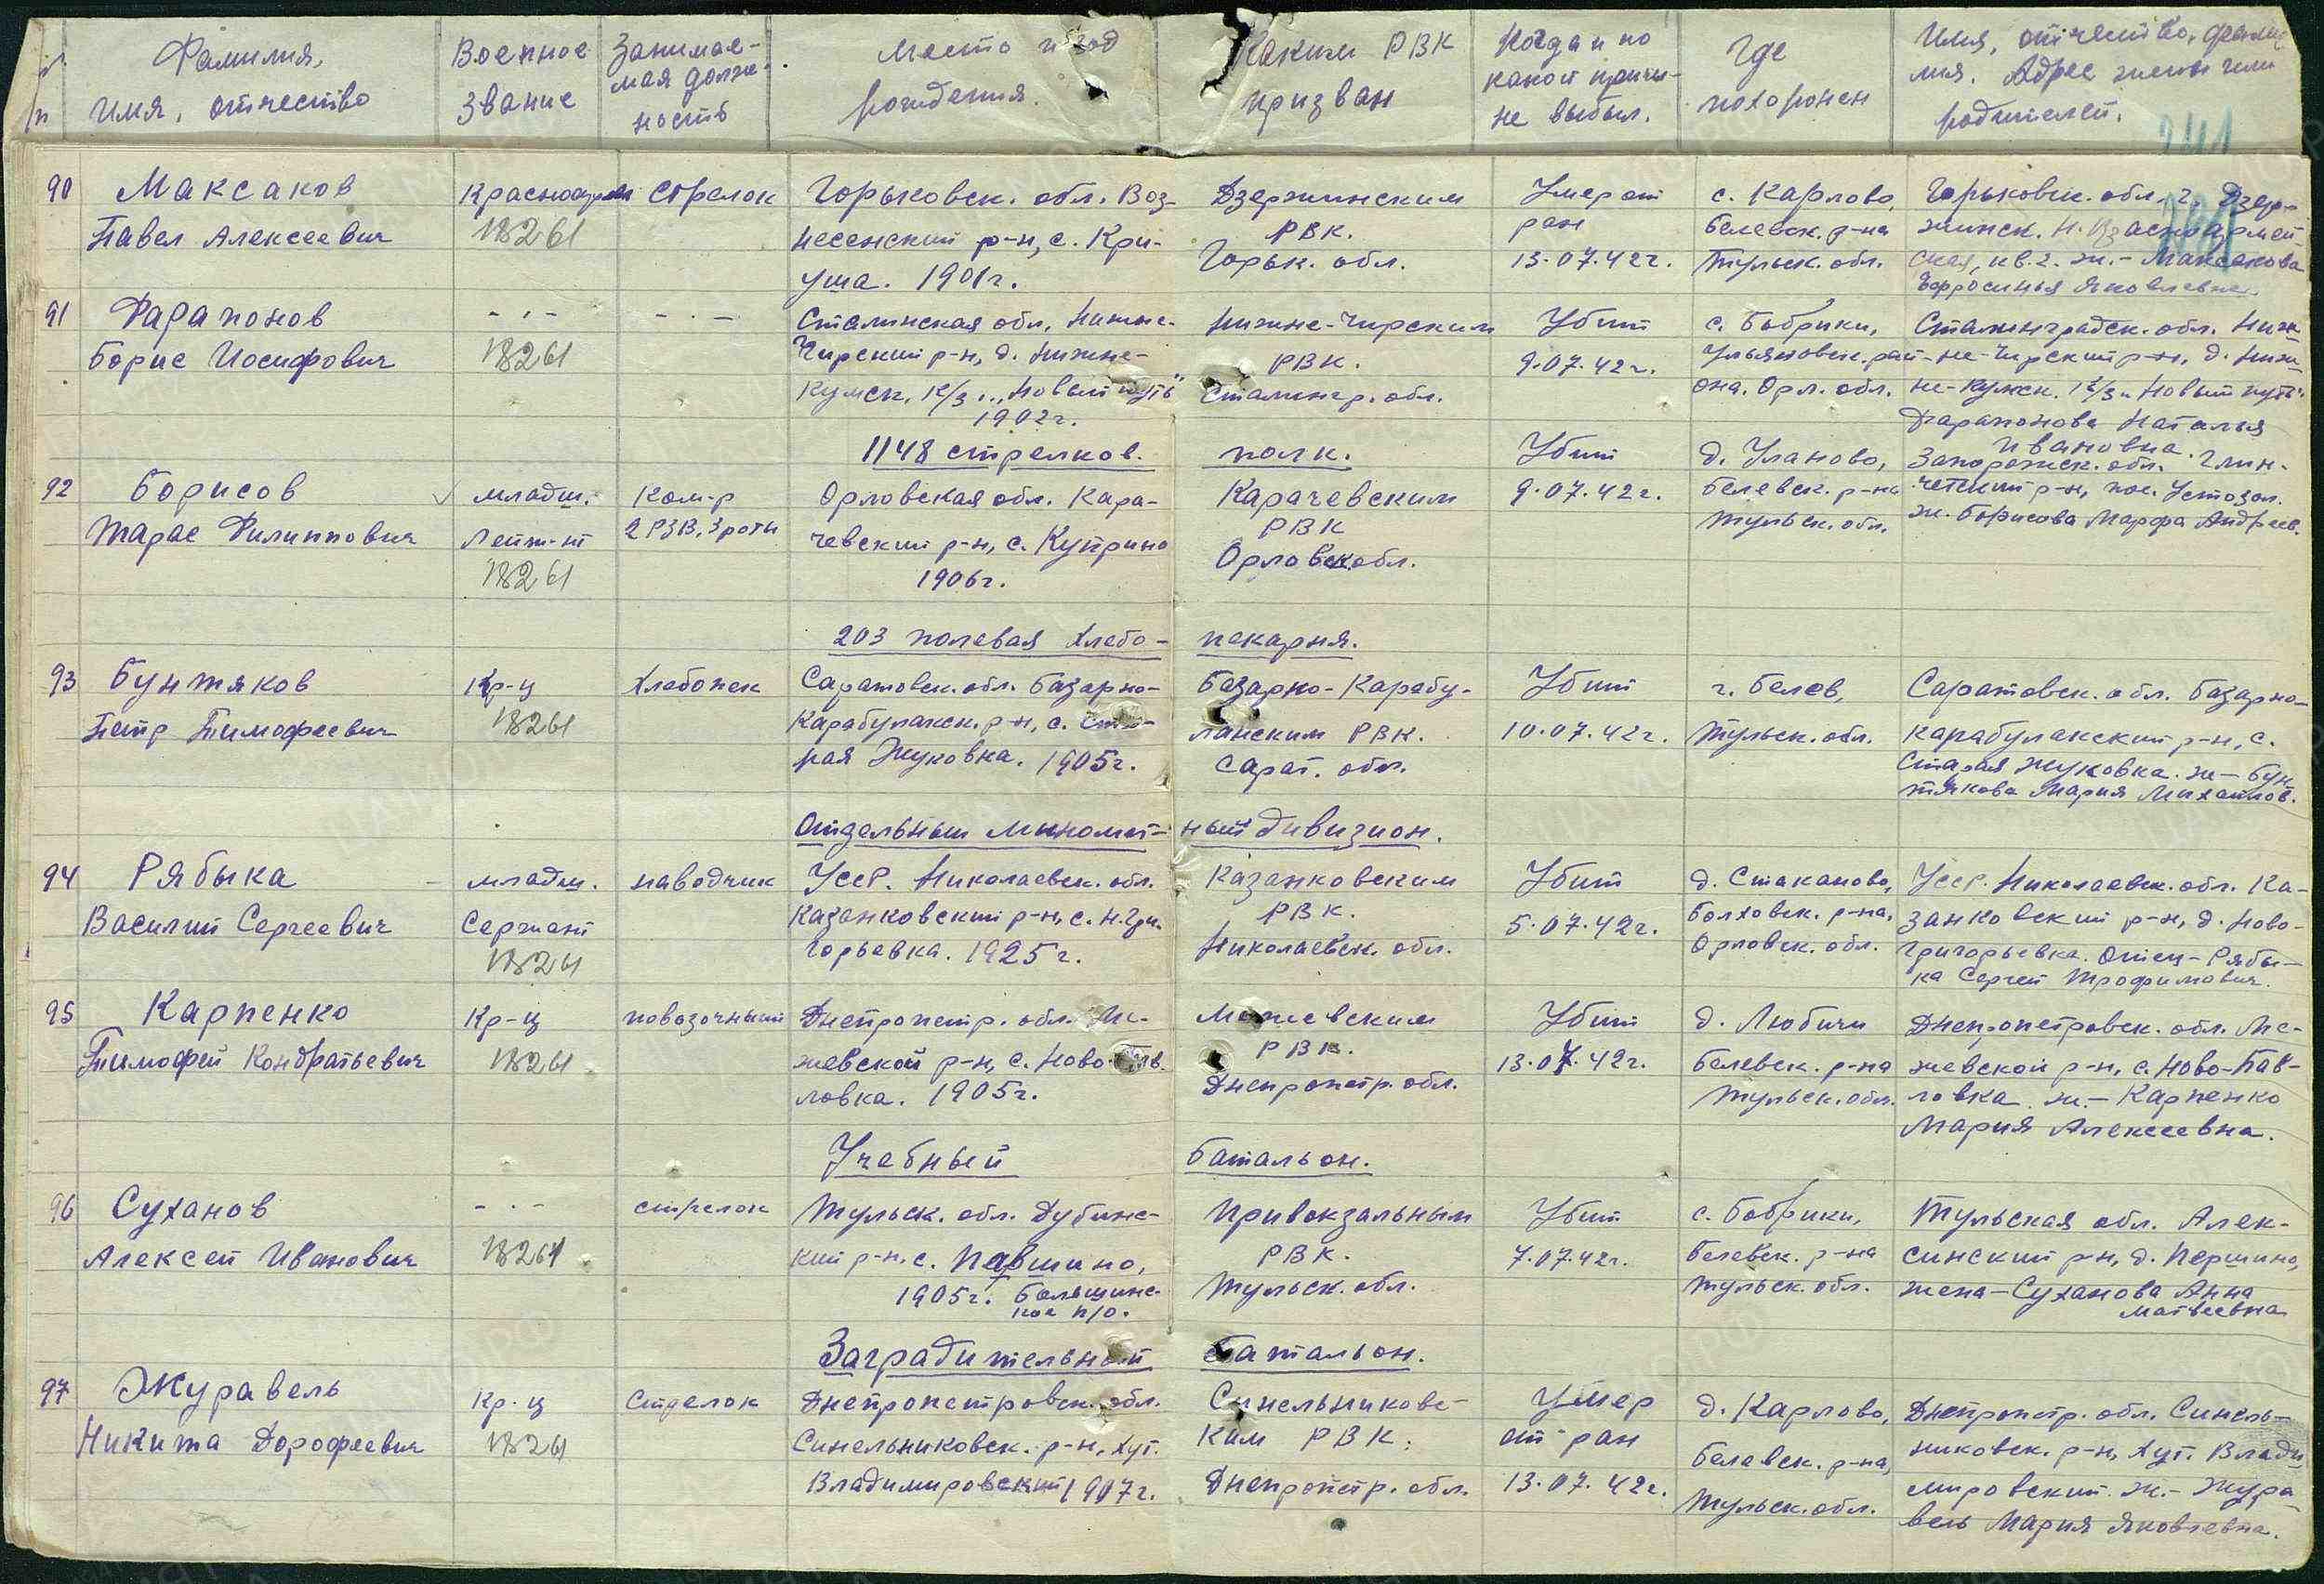 п
Фамилия,
имя, отчество
Военное
звание
Занимае-
мая долж-
ность
Место и год
рождения.
Каким РВК
призван
Когда и по
какой причи-
не выбыл.
Где
похоронен
Имя, отчество, фами
лия. Адрес жены или
родителей.
241
90
Максаков
Павел Алексеевич
Красноарм
18261
стрелок
Горьковск. обл. Воз-
несенский р-н, с. Кри-
уша. 1901г.
Дзержинским
РВК.
Горьк. обл.
Умер от
ран
13.07.42г.
с. Карлово,
Белевск. р-на
Тульск. обл.
Горьковск. обл. г. Дзер-
жинск. Красноармей
ская, кв. 2. ж.- Максакова
Ефросинья Яковлевна
91
Фарапонов
Борис Иосифович
- . -
18261
- . -
Сталинская обл. Нижне-
Чирский р-н, д. Нижне-
Кумск, к/з „Новый путь"
1902г.
Нижне-Чирским
РВК.
Сталингр. обл.
Убит
9.07.42г.
с. Бобрики,
Ульяновск. рай-
она. Орл. обл.
Сталинградск. обл. Ниж
не-Чирский р-н, д. Ниж
не-Кумск. к/з „Новый путь"
Фарапонова Наталья
Ивановна.
1148 стрелков. полк.
92
Борисов
Тарас Филиппович
младш.
Лейт-нт
18261
Ком-р
2 РЗВ, 3 роты
Орловская обл. Кара-
чевский р-н, с. Куприно
1906г.
Карачевским
РВК
Орловск. обл.
Убит
9.07.42г.
д. Уланово,
Белевск. р-на
Тульск. обл.
Запорожск. обл.
р-н, пос.
ж. Борисова Марфа Андреев.
203 полевая хлебо-пекарня.
93
Бунтяков
Петр Тимофеевич
Кр-ц
18261
Хлебопек
Саратовск. обл. Базарно-
Карабулакск. р-н, с. Ста-
рая Жуковка. 1905г.
Базарно-Карабу-
лакским РВК.
Сарат. обл.
Убит
10.07.42г.
г. Белев,
Тульск. обл.
Саратовск. обл. Базарно-
карабулакский р-н, с.
Старая Жуковка. ж - Бун
тякова Мария Михайлов.
Отдельный Миномет-ный дивизион.
94
Рябыка
Василий Сергеевич
младш.
Сержант
18261
наводчик
УССР. Николаевск. обл.
Казанковский р-н, с. Н. Гри-
горьевка. 1925г.
Казанковским
РВК.
Николаевск. обл.
Убит
5.07.42г.
д. Стаканово,
Болховск. р-на,
Орловск. обл.
УССР. Николаевск. обл. Ка-
занковский р-н, д. Ново-
григорьевка. Отец - Рябы-
ка Сергей Трофимович.
95
Карпенко
Тимофей Кондратьевич
Кр-ц
18261
повозочный
Днепропетр. обл. Ме-
жевской р-н, с. Ново-Пав.
ловка. 1905г.
Межевским
РВК.
Днепропетр. обл.
Убит
13.07.42г.
д. Любичи
Белевск. р-на
Тульск. обл.
Днепропетровск. обл. Ме-
жевской р-н, с. Ново-Пав-
ловка. ж. - Карпенко
Мария Алексеевна.
Учебный Батальон.
96
Суханов
Алексей Иванович
- . -
18261
стрелок
Тульск. обл. Дубенс-
кий р-н. с. Павшино,
1905г. Болящинс-
кое п/о.
Привокзальным
РВК.
Тульск. обл.
Убит
7.07.42г.
с. Бобрики,
Белевск. р-на
Тульск. обл.
Тульская обл. Алек-
синский р-н, д. Першино,
жена - Суханова Анна
Матвеевна
Заградительный батальон.
97
Журавель
Никита Дорофеевич
Кр-ц
18261
Стрелок
Днепропетровск. обл.
Синельниковск. р-н, хут.
Владимировский 1907г.
Синельниковс-
ким РВК.
Днепропетр. обл.
Умер
от ран
13.07.42г.
д. Карлово,
Белевск. р-на,
Тульск. обл.
Днепропетр. обл. Синель-
никовск. р-н, хут. Влади
мировский. ж. - Жура
вель Мария Яковлевна.